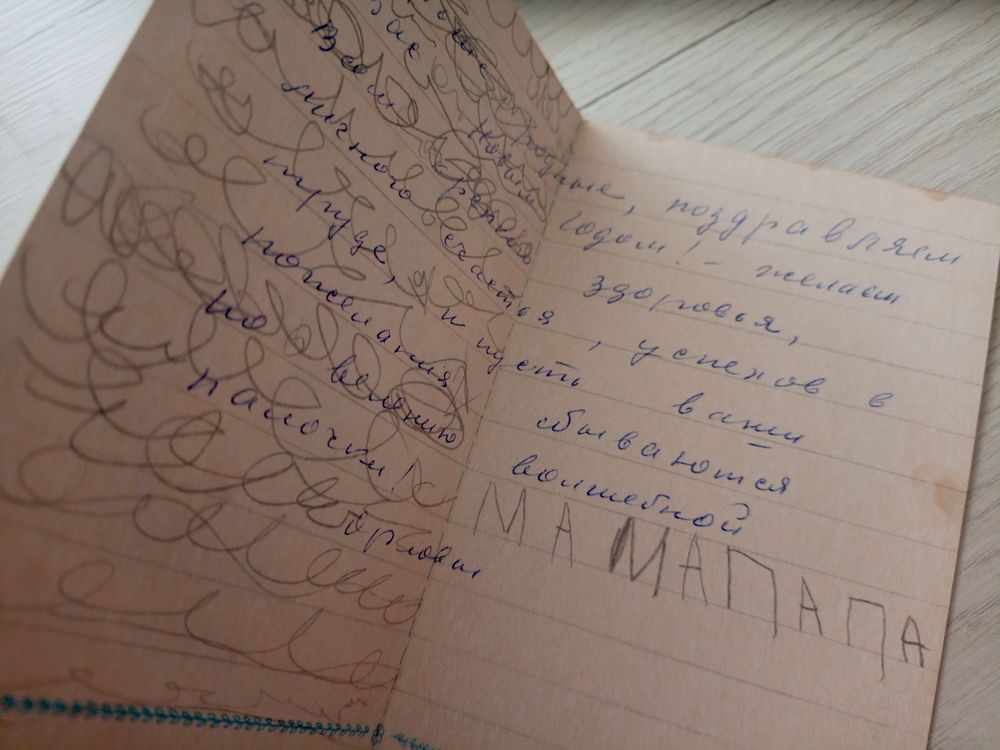 родные, поздравляем
Новым годом! - желаем
крепкого здоровья,
личного счастья, успехов в
труде, и пусть ваши
пожелания сбываются
по велению волшебной
палочки!
Орловы
МАМАПАПА